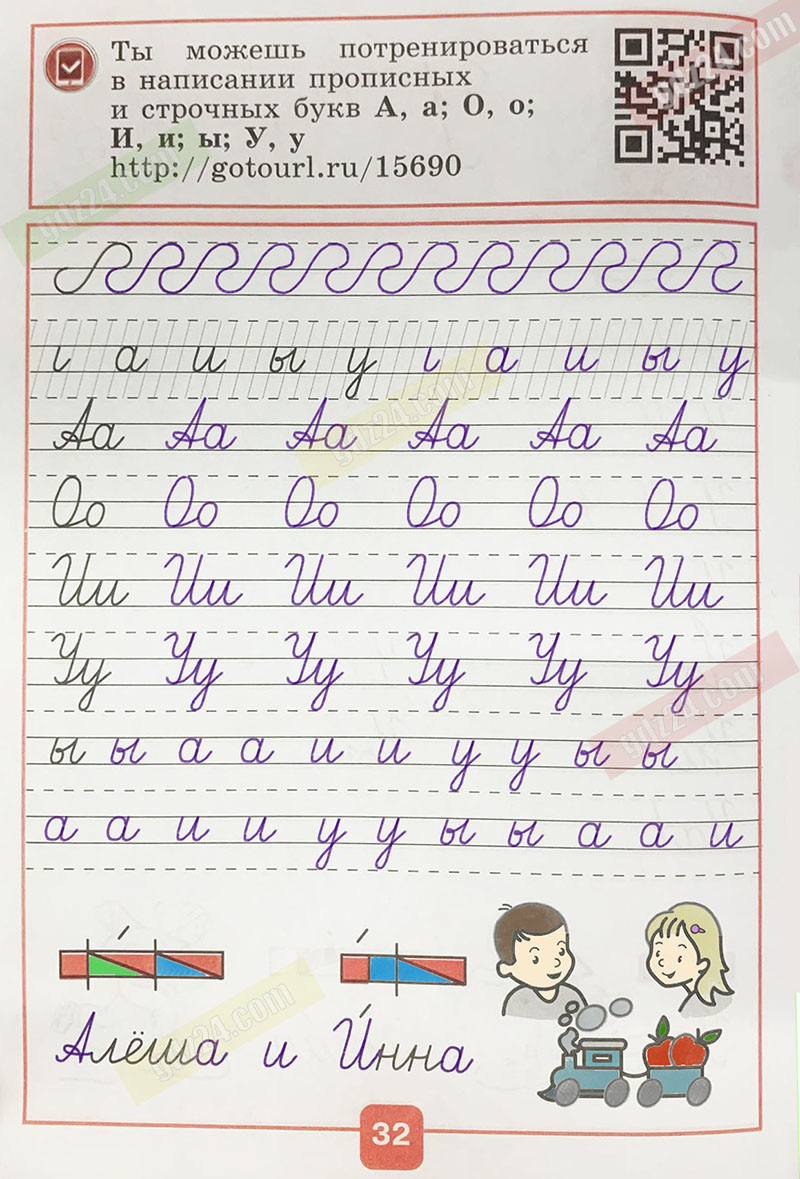 Ты можешь потренироваться
в написании прописных
и строчных букв А, а; О, о;
И, и; ы; У, у
http://gotourl.ru/15690
ı а и ы у ı а и ы у
Аа Аа Аа Аа Аа Аа
Оо Оо Оо Оо Оо Оо
Ии Ии Ии Ии Ии Ии
Уу Уу Уу Уу Уу Уу
ы ы а а и и у у ы ы
а а и и у у ы ы а а и
Алёша и И́нна
32
gdz24.com
gdz24.com
gdz24.com
gdz24.com
gdz24.com